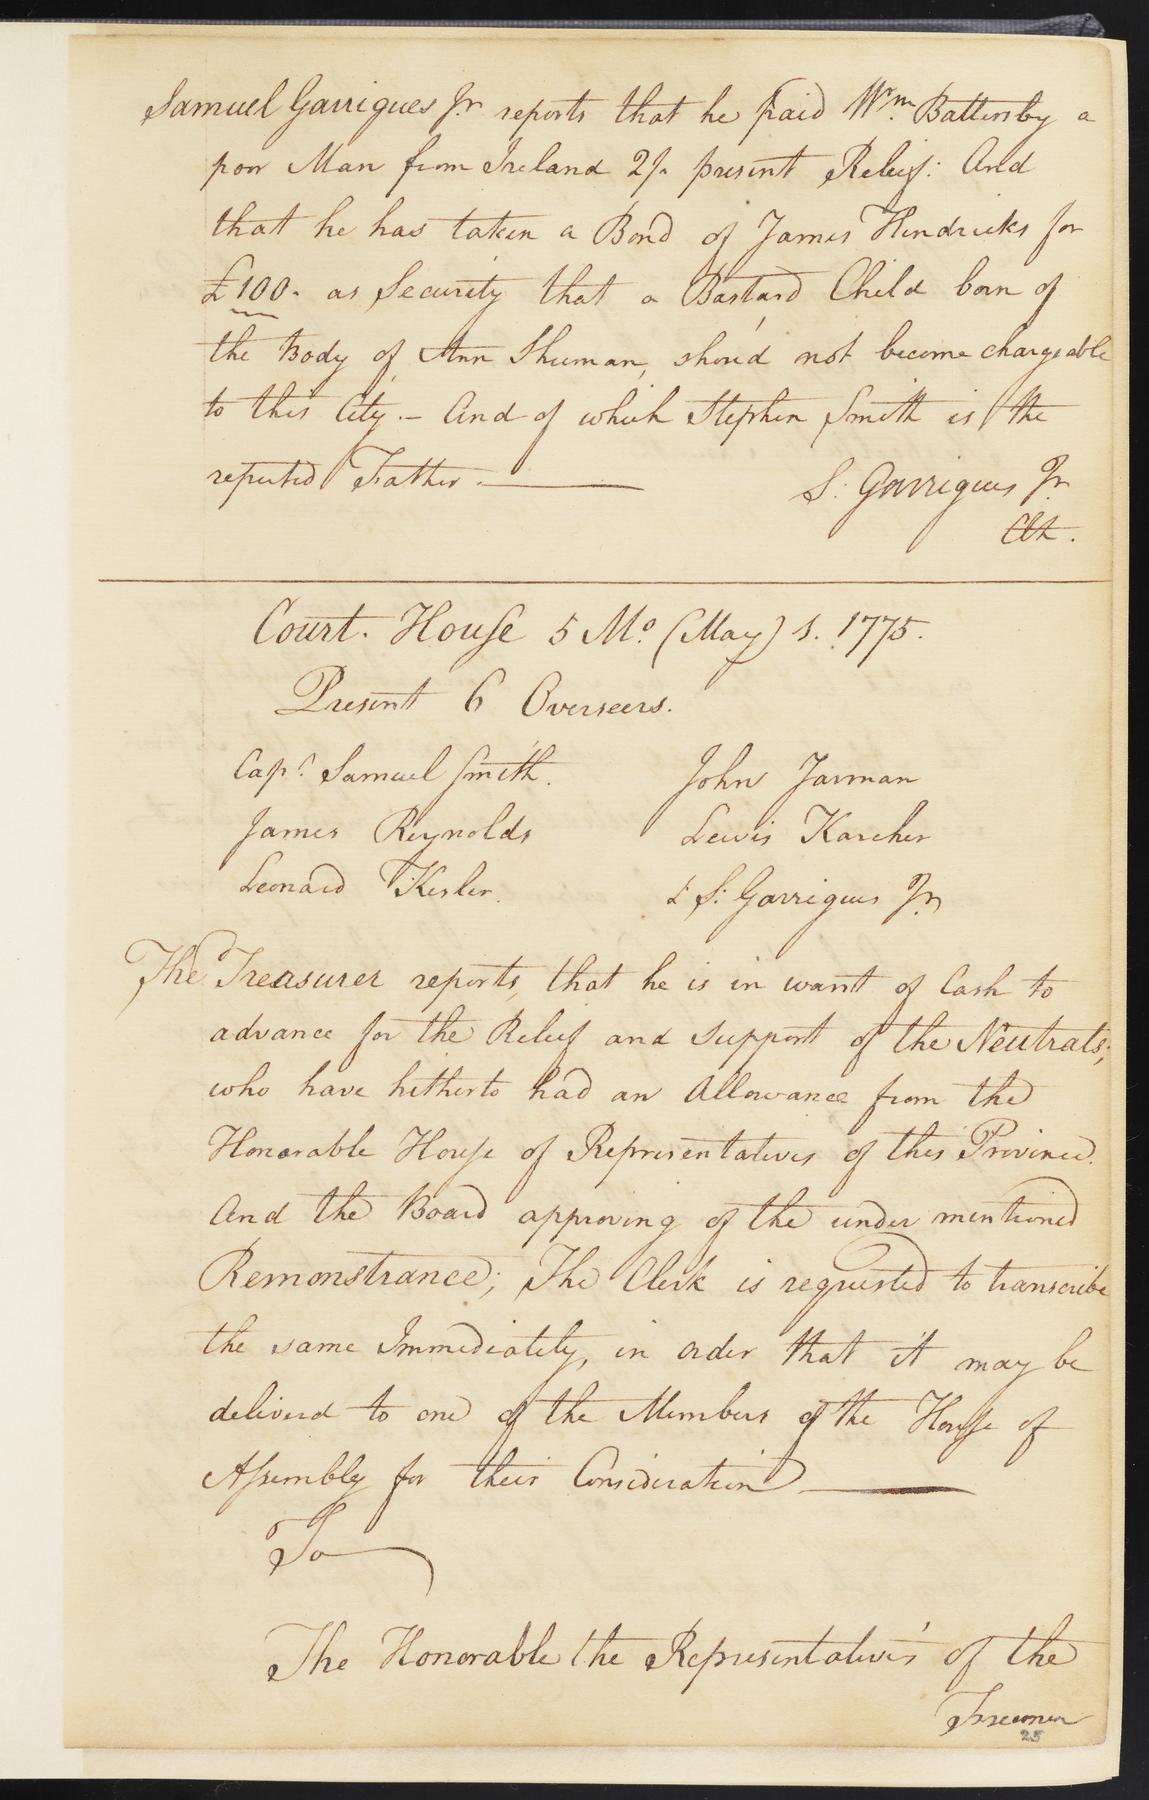 Samuel Garrigues Jr. reports that he paid Wm. Battersby a
poor Man from Ireland 2/. present Relief: And
that he has taken a Bond of James Hendricks for
£100. as Security that a Bastard Child born of
the Body of Ann Shuman, shou'd not become chargeable
to this City. – And of which Stephen Smith is the
reputed Father.
S. Garrigues Jr.
Clk.
Court. House 5 Mo. (May) 1. 1775.
Present 6 Overseers.
Capt. Samuel Smith.
John Jarman
James Reynolds
Lewis Karcher
Leonard Kesler.
& S. Garrigues Jr.
The Treasurer reports, that he is in want of Cash to
advance for the Relief and Support of the Neutrals;
who have hitherto had an Allowance from the
Honorable House of Representatives of this Province.
And the Board approving of the under mentioned
Remonstrance; The Clerk is requested to transcribe
the same Immediately, in order that it may be
deliverd to one of the Members of the House of
Assembly for their Consideration
To
The Honorable the Representatives of the
Freemen
25